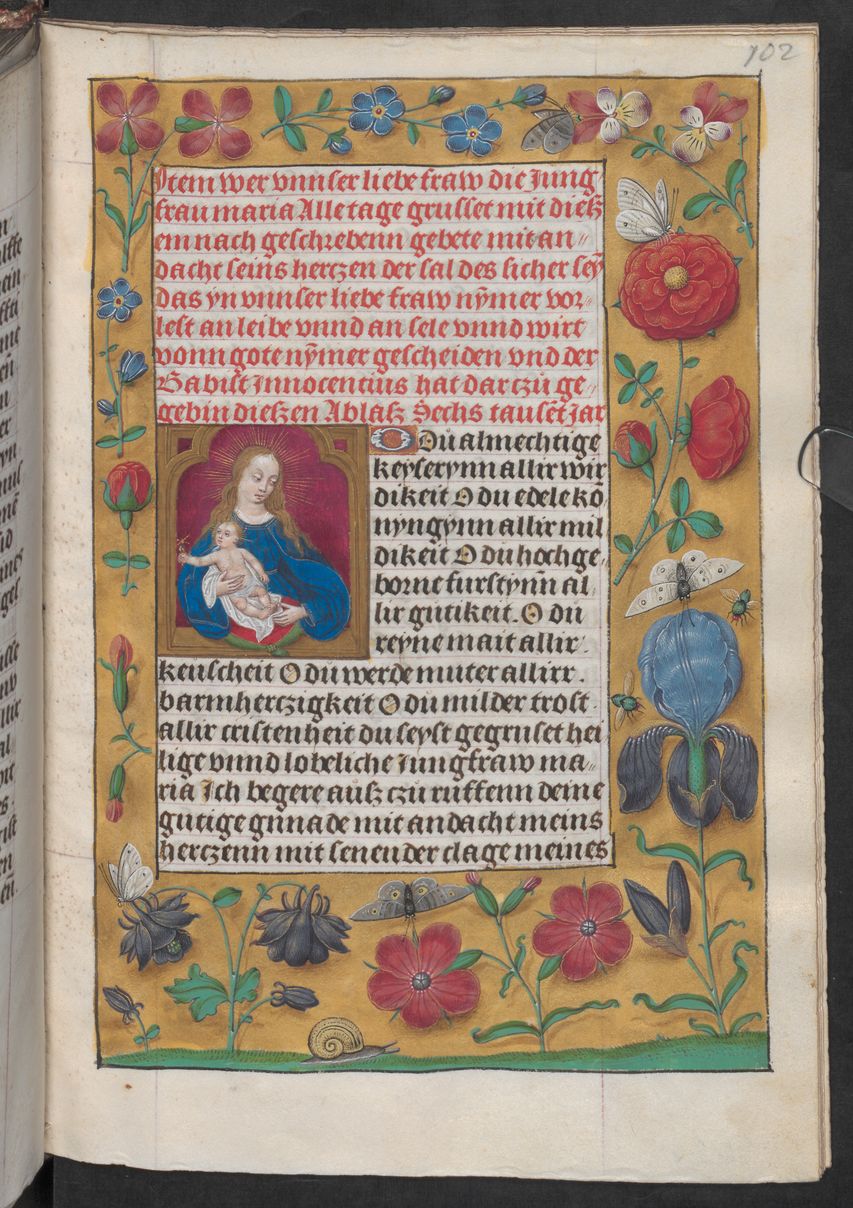 102
Item wer vnnser liebe fraw die Jung
frau maria Alle tage grusset mit dieß
em nach geschrebenn gebete mit an〃
dacht seins herczen der sal des sicher sey
das yn vnnser liebe fraw nÿmer vor〃
lest an leibe vnnd an sele vnnd wirt
vonn gote nÿmer gescheiden vnd der
Babist Innocentius hat dar czu ge〃
gebin dießen Ablaß Sechs tausēt jar
O Du almechtige
keyserynn allir wir
dikeit O du edele kö
nyngynn allir mil
dikeit O du hochge〃
borne furstynn al〃
lir gutikeit. O du
reyne mait allir〃
keuscheit O du werde muter allirr.
barmherczigkeit O du milder trost.
allir cristenheit du seyst gegruset hei
lige vnnd lobeliche Jungfraw ma〃
ria Ich begere auß czu ruffenn deine
gutige gnnade mit andacht meins
herczenn mit senender clage meines